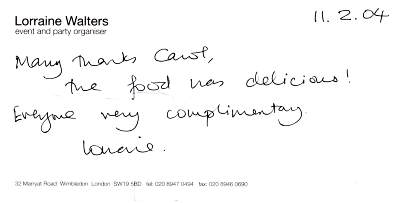 Lorraine Walters
event and party organiser
11.2.04
Many thanks Carol,
the food was delicious!
Everyone very complimentary
Lorraine.
32 Marryat Road Wimbledon London SW19 5BD tel: 020 8947 0494 fax: 020 8946 0690